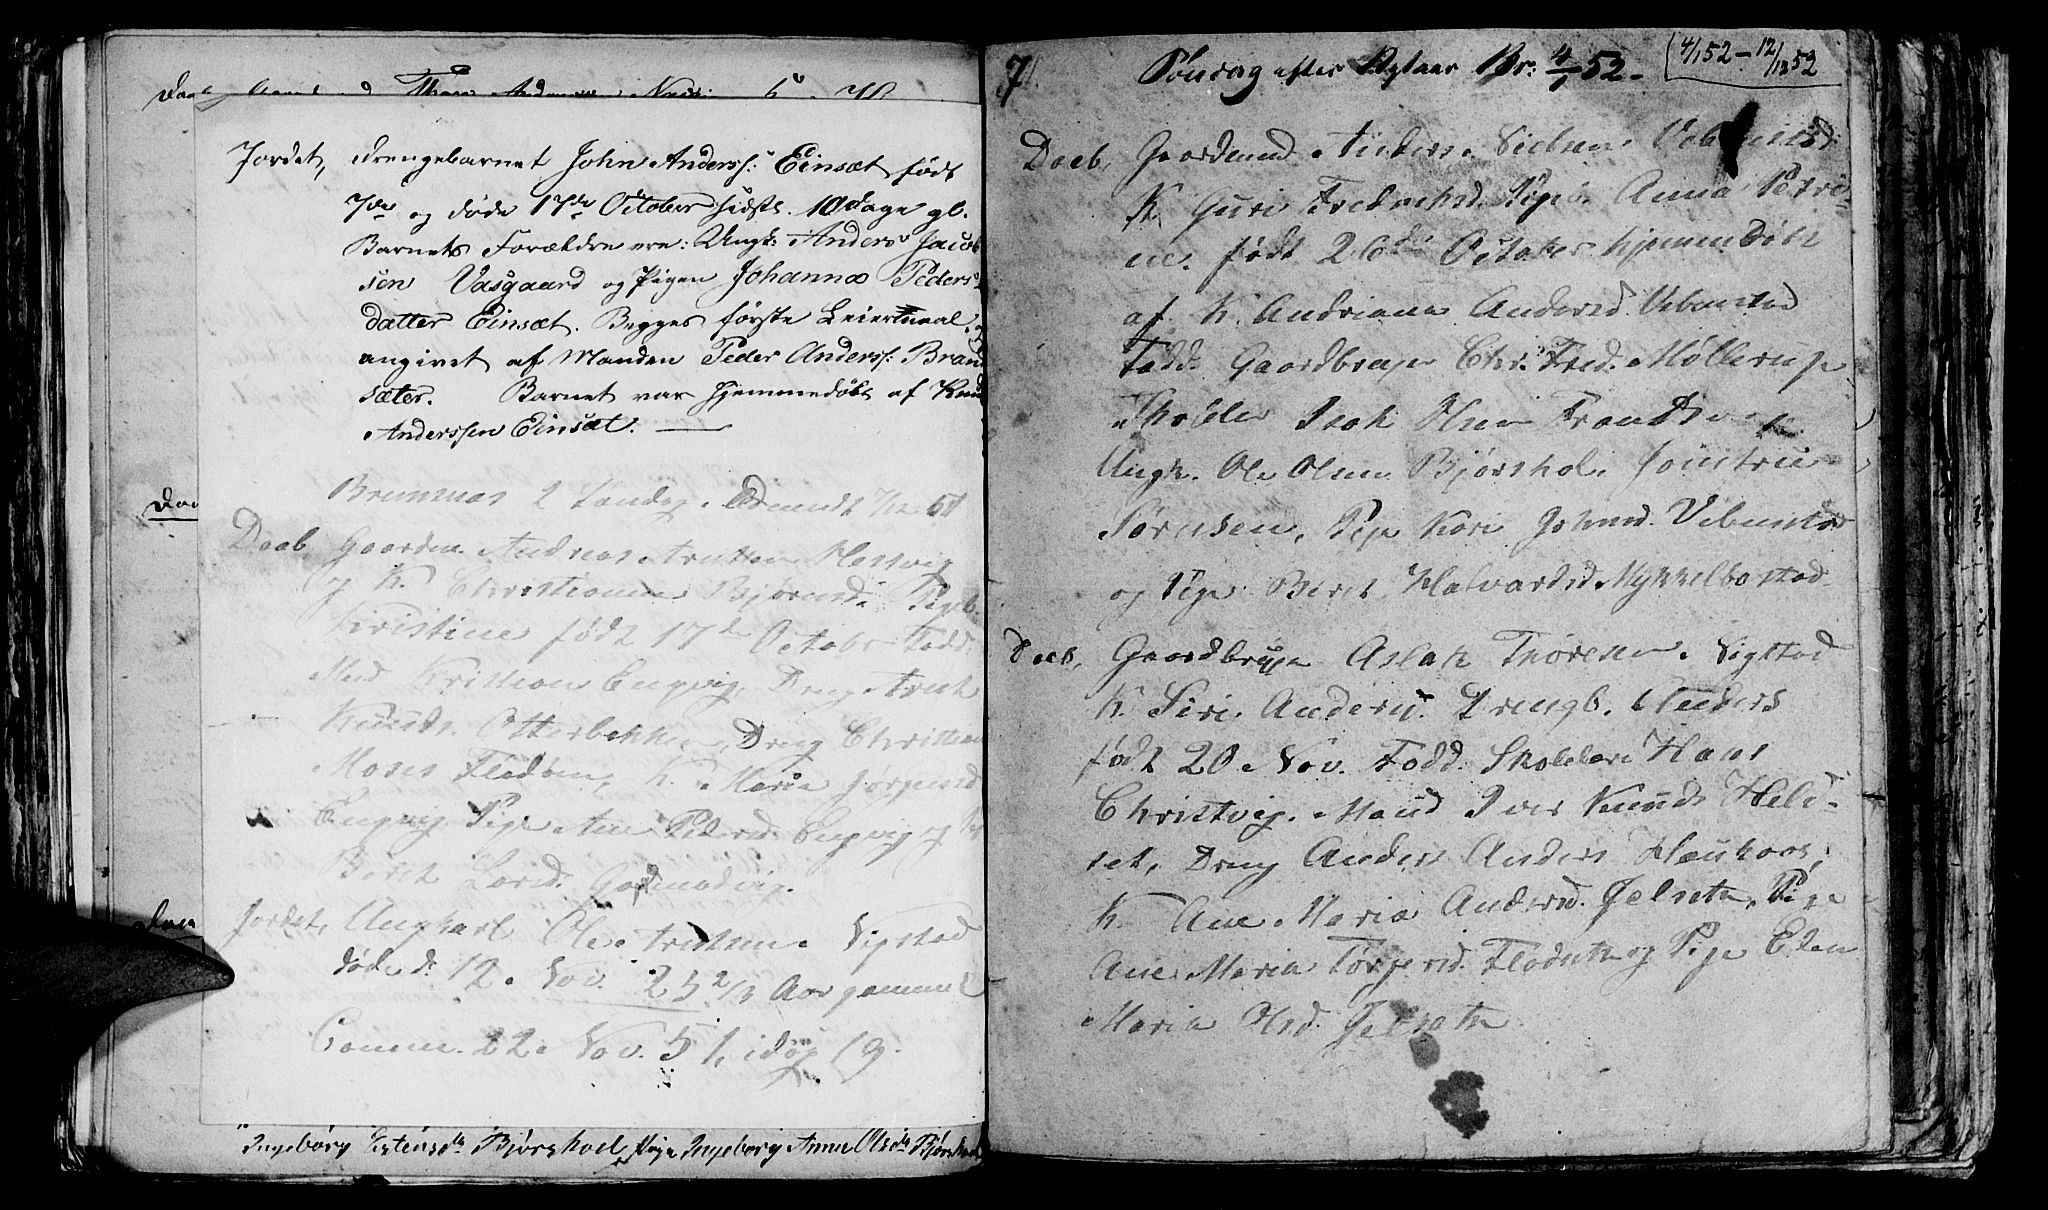 Jordet, Drengebarnet John Anderss: Einsæt født
7de og døde 17de October sidstl. 10 dage gl.
Barnets Forældre ere: Ungk: Anders Jacob
sen Vasgaard og Pigen Johanna Peders
datter Einsæt. Begges første Leiermaal,
angivet af Manden Peder Anderss: Brand
sæter. Barnet var hjemmedøbt af Knud
Anderssen Einsæt.
Bremnæs 2 Søndag i Advendt 7/12 51
Daab, Gaardm. Andreas Knutsen Hestvig
og K. Christianna Bjørnsd. Pigeb.
Kristine født 17de Octobr Fadd:
Mad Kristian Engvig, Dreng Knut
Knuds. Otterbekken, Dreng Christian
Moses Flødsen, K. Maria Jørgensd
Engvig Pige Ane Pedersd. Engvig og
Berit Larsd. Gasmadvig.
Jordet, Ungkarl Ole Knutsen Sigstad
døde d. 12. Nov. 25 2/3 Aar gammel
Comm. 22. Nov. 51, 19.
Ingeborg Eistensdr Bjørshoel Pige Ingeborg Anna Olsdr Bjørshoel
7. Søndag efter Nytaar Br: 4/1 52. (4/1 52 – 12/12 52
Daab, Gaardmd Anders Nielsen Vebenstad
K. Guri Fredriksd. Pigeb. Anna Petri-
ne. født 26de October hjemmedøbt
af K. Andriana Andersd. Vebenstad
Fadd. Gaardbruger Chr. Fred. Møllerup
Isak Olsen
Ungk. Ole Olsen Bjørshol, Jomfru
Sørensen, Pige Kari Johnsd. Vebenstad
og Pige Berit Halvardsd Mykkelbostad
Daab, Gaardbruger Aslak Thoresen Sigstad
K. Siri Andersd. Drengb. Anders
født 20. Nov. Fadd. Skolelærer Hans
Christvig. Mand Iver Knuds Heli-
set, Dreng Anders Anders Haukaas,
K. Ane Maria Andersd. Jelseth, Pige
Ane Maria Torgersd. Flødseth og Pige Elen
Maria Olsd. Jelseth